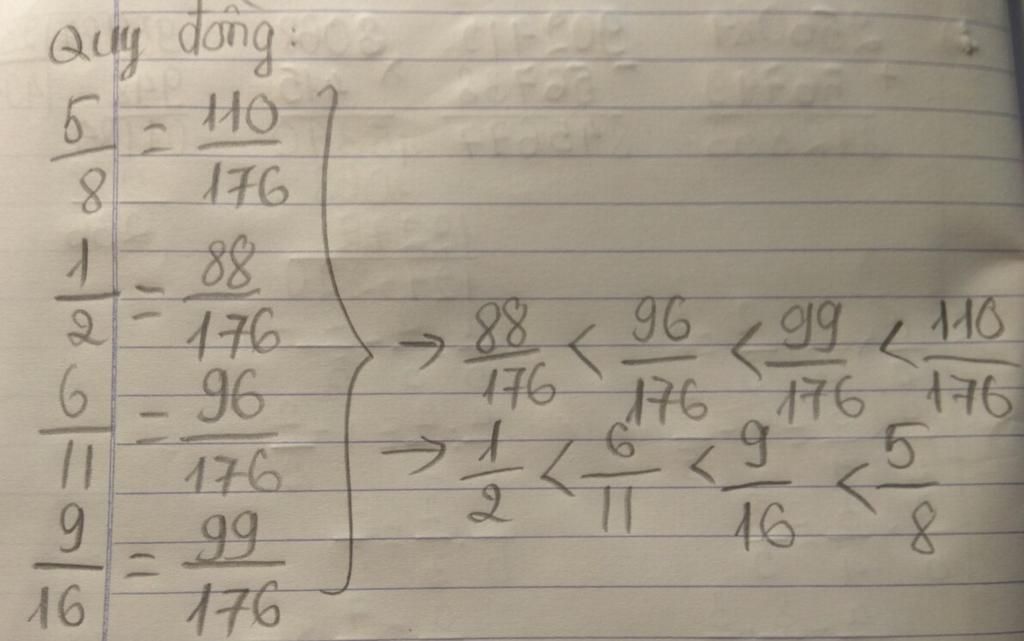 Quy đồng:
5/8 = 110/176
1/2 = 88/176
6/11 = 96/176
9/16 = 99/176
→ 88/176 < 96/176 < 99/176 < 110/176
→ 1/2 < 6/11 < 9/16 < 5/8